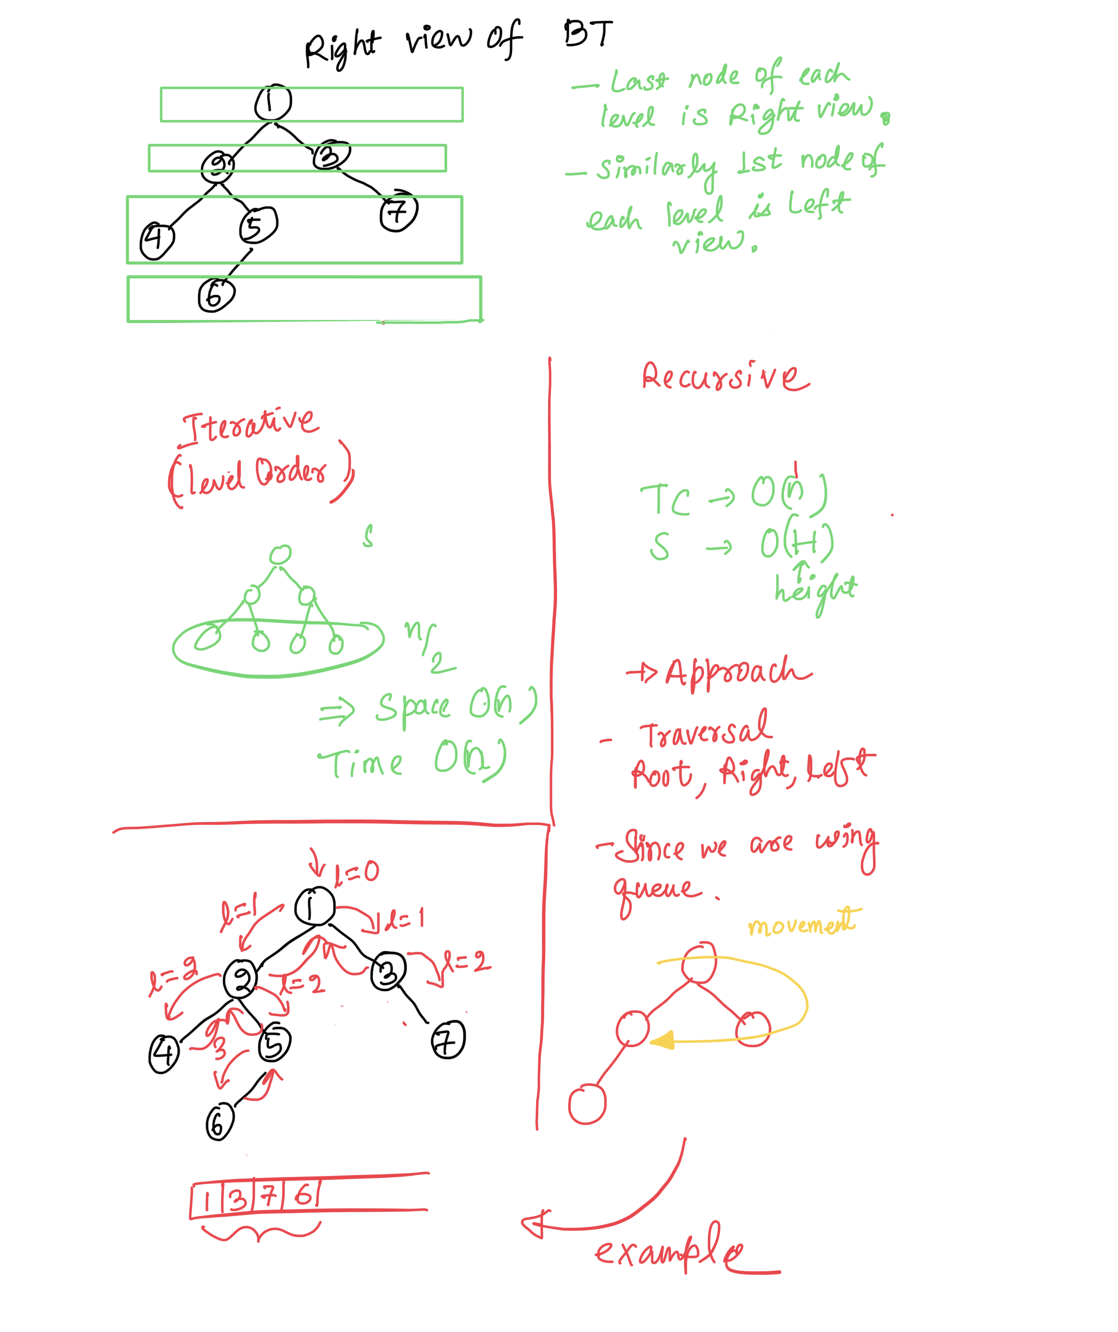 Right view of BT
1
2 3
4 5 7
6
- Last node of each
level is Right view.
- Similarly 1st node of
each level is Left
view.
Iterative
(level Order)
S
n/2
⇒ Space O(n)
Time O(n)
Recursive
TC → O(n)
S → O(H)
↑
height
→ Approach
- Traversal
Root, Right, Left
- Since we are using
queue.
movement
l=0
1
l=1 l=1
2 3
l=2 l=2 l=2
4 5 7
3
6
1 3 7 6
example